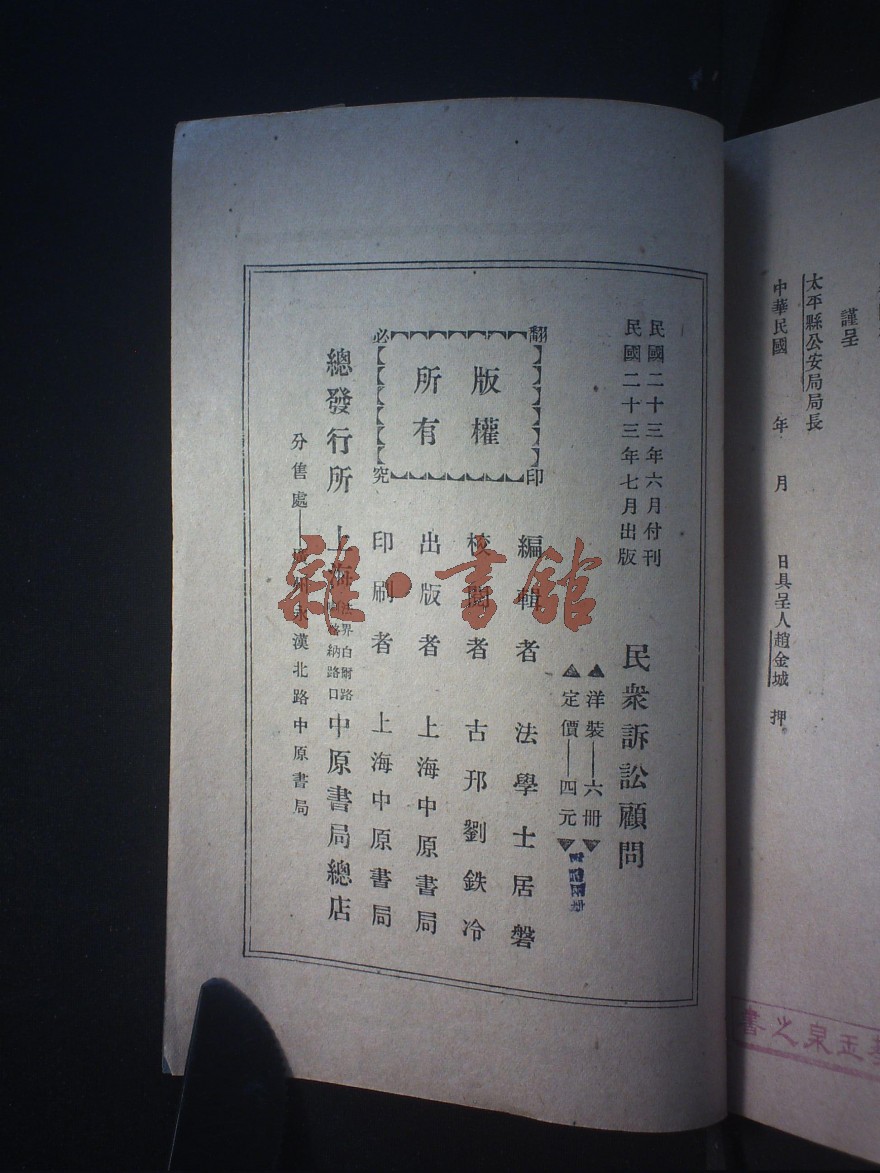 謹呈
太平縣公安局局長
中華民國　年　月　日具呈人趙金城　押
民國二十三年六月付刊
民國二十三年七月出版
民衆訴訟顧問
洋裝——六冊
定價——四元
翻印必究
版權所有
編輯者　法學士居磐
校閱者　古邗劉鉄冷
出版者　上海中原書局
印刷者　上海中原書局
總發行所　上海法界白爾路　納路口　中原書局總店
分售處——州永漢北路中原書局
雜·書館
泉之書